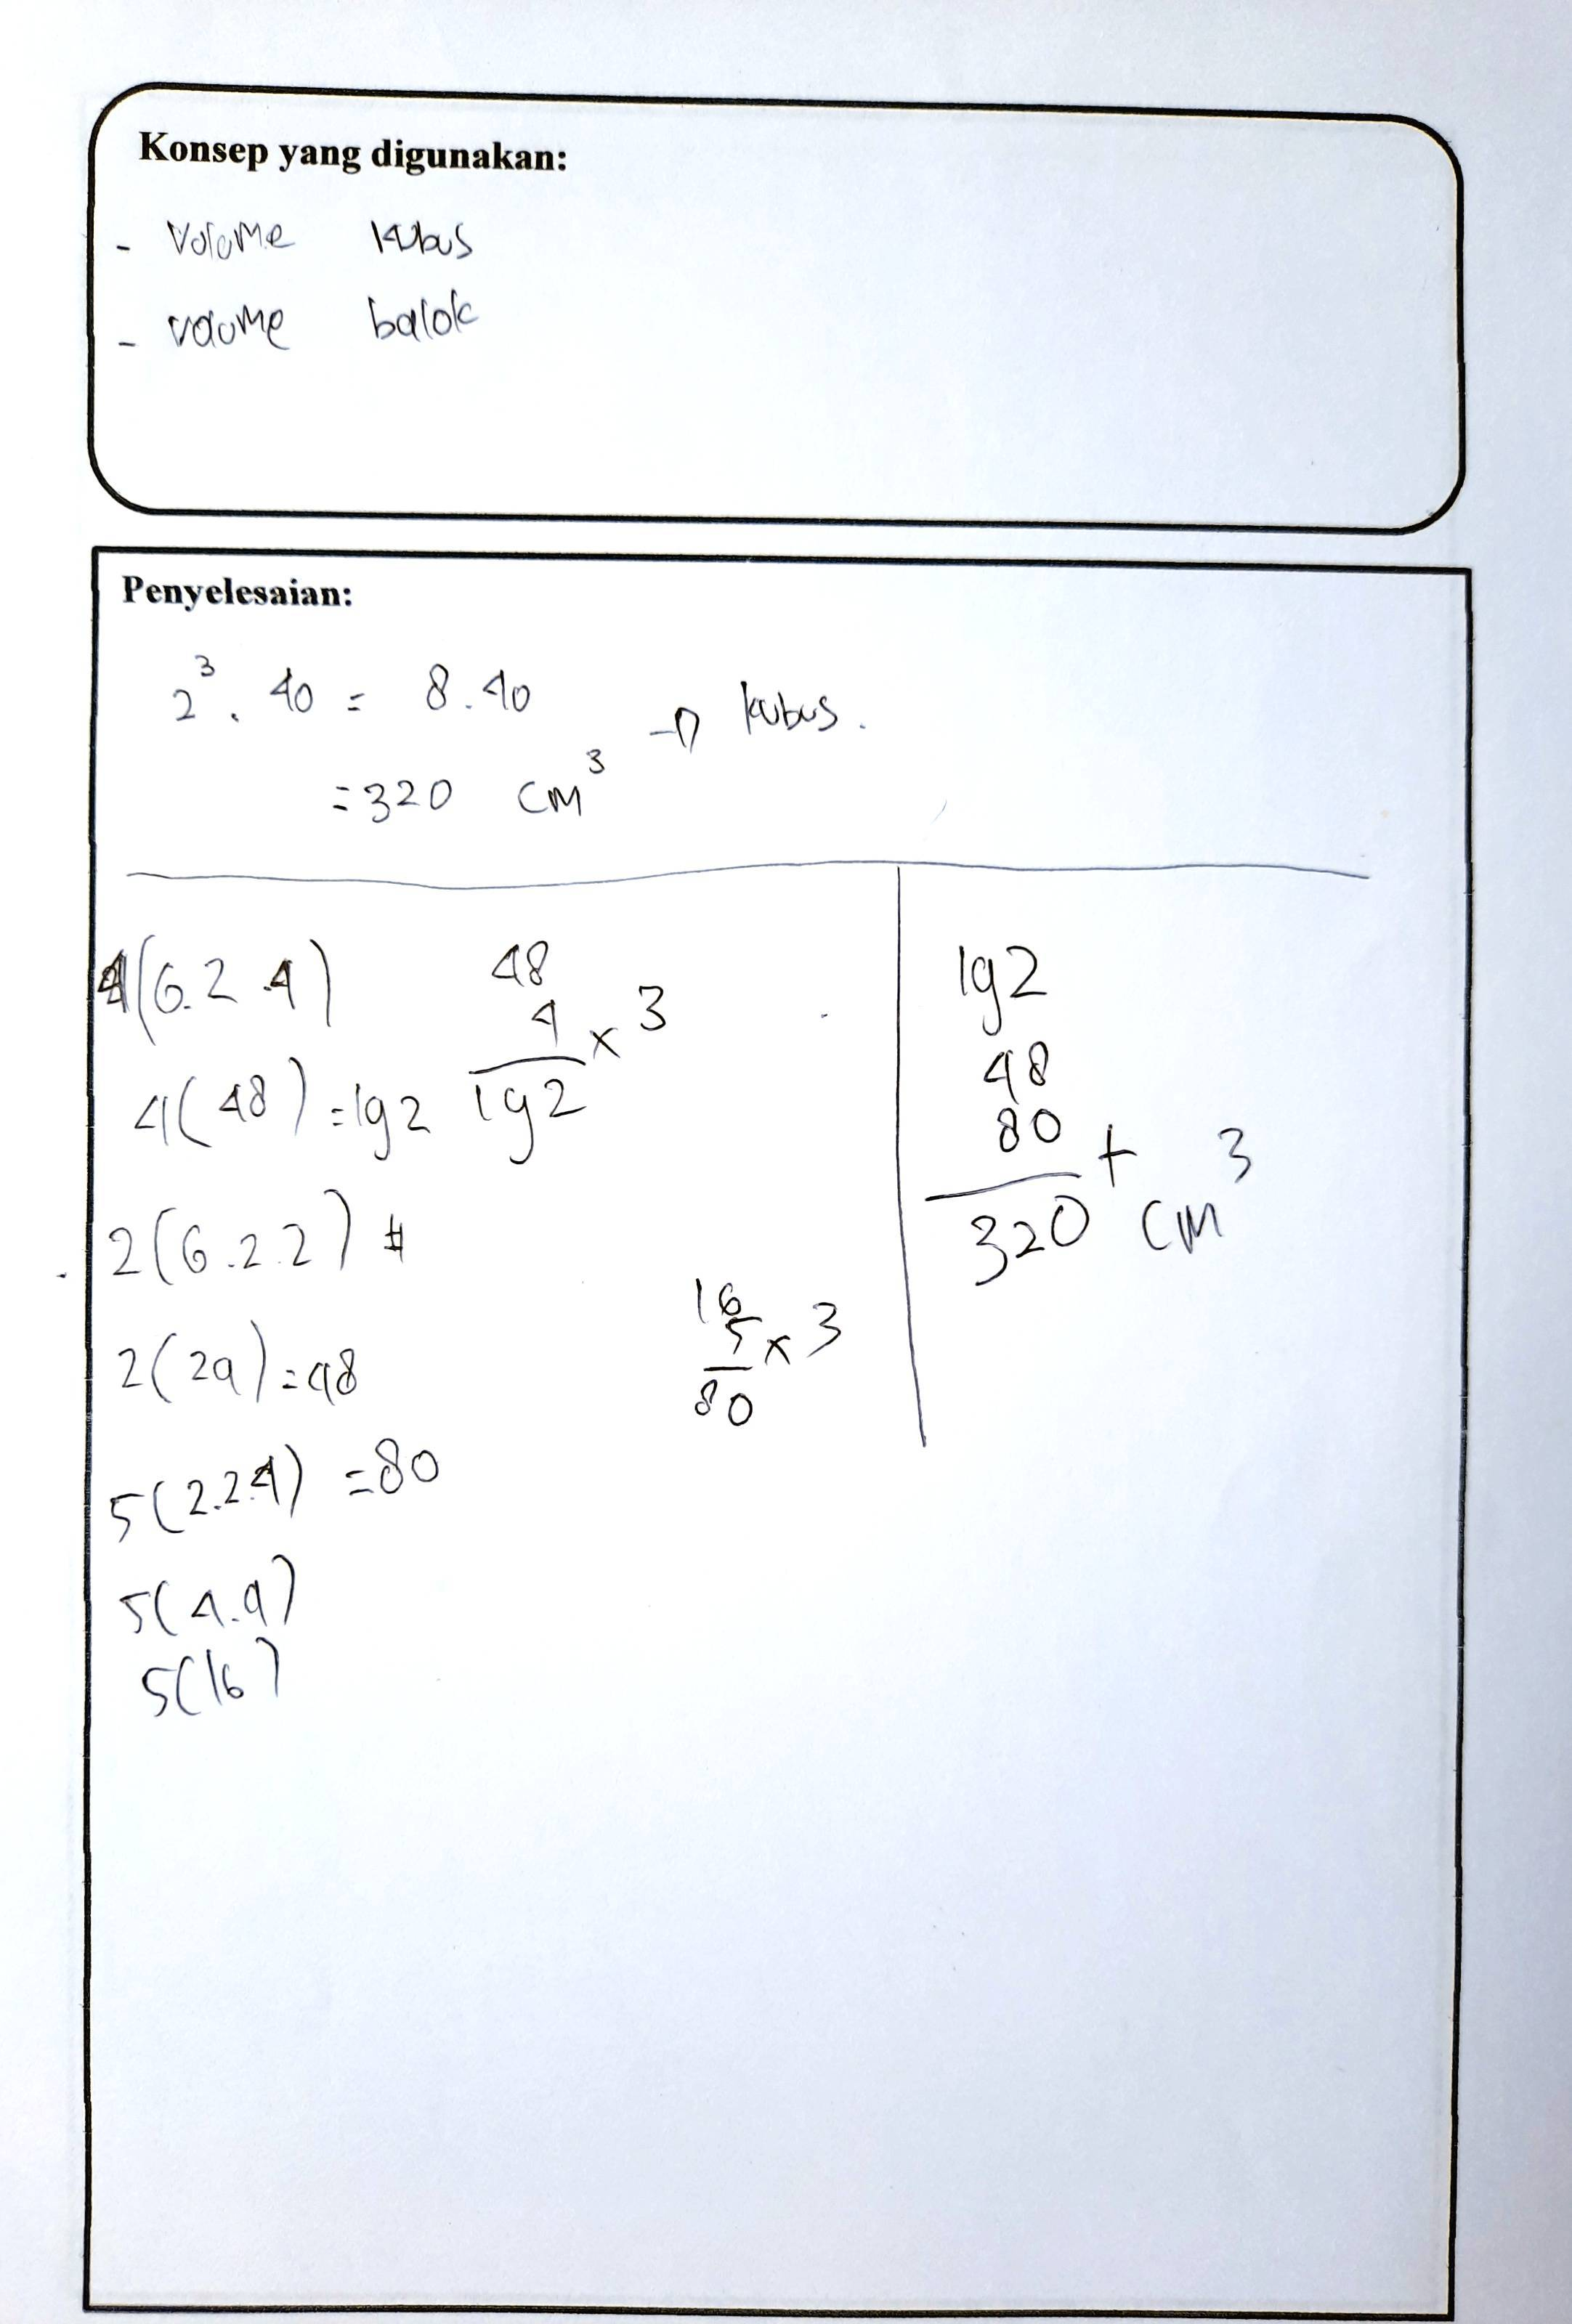 Konsep yang digunakan:
- Volume kubus
- volume balok
Penyelesaian:
2³ . 40 = 8.40
= 320 cm³ → kubus.
4(6.2.4)
4(48) = 192
48
4 x 3
192
2(6.2.2)
2(24) = 48
5(2.2.4) = 80
5(4.4)
5(16)
16
5 x 3
80
192
48
80 +
320 cm³